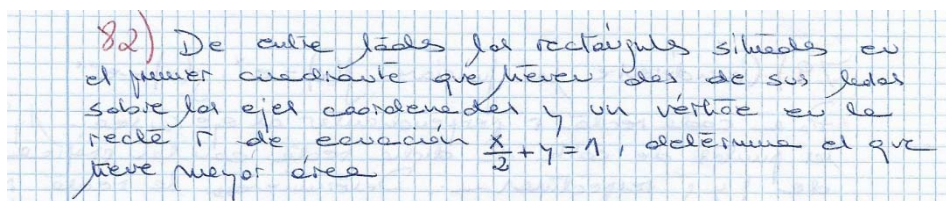 82) De entre todos los rectángulos situados en
el primer cuadrante que tienen dos de sus lados
sobre los ejes coordenados y un vértice en la
recta r de ecuación x/2 + y = 1, determina el que
tiene mayor área